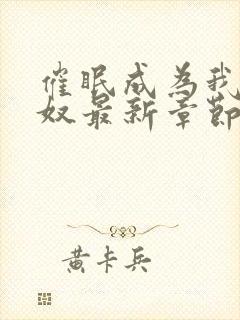 催眠成为我
奴最新章節
黄卡兵